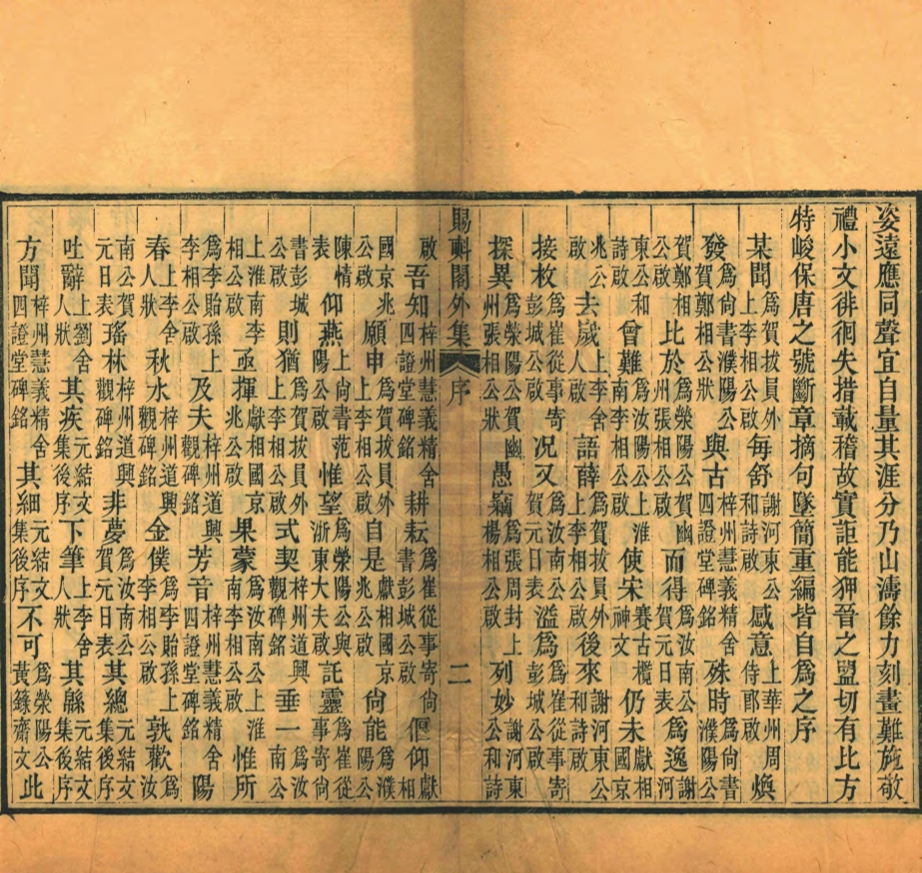 姿遠應同聲宜自量其涯分乃山濤餘力刻畫難施敬
禮小文徘徊失措載稽故實詎能狎晉之盟切有比方
特峻保唐之號斷章摘句墜簡重編皆自爲之序
某聞爲賀拔員外上李相公啟每舒謝河東公和詩啟感意上華州周侍郎啟煥
發爲尚書濮陽公賀鄭相公狀與古梓州慧義精舍四證堂碑銘殊時爲尚書濮陽公
賀鄭相公啟比於爲滎陽公賀幽州張相公啟而得爲汝南公賀元日表爲逸謝河
東公和詩啟曾難爲汝陽公上淮南李相公啟使宋賽古欖神文仍未獻相國京
兆公啟去歲上李舍人啟語薛爲賀拔員外上李相公啟後來謝河東公和詩啟
接枚爲崔從事寄彭城公啟况又爲汝南公賀元日表溢爲爲崔從事寄彭城公啟
探異爲滎陽公賀幽州張相公狀愚竊爲張周封上楊相公啟列妙謝河東公和詩
賜斛閣外集 序 二
啟吾知梓州慧義精舍四證堂碑銘耕耘爲崔從事寄尚書彭城公啟偃仰獻相
國京兆公啟願申爲賀拔員外上李相公啟自是獻相國京兆公啟尙能爲濮陽公
陳情表仰燕上尚書范陽公啟惟望爲滎陽公與浙東大夫啟託靈爲崔從事寄尚
書彭城公啟則猶爲賀拔員外上李相公啟式契梓州道興觀碑銘垂二爲汝南公
上淮南李相公啟亟揮獻相國京兆公啟果蒙爲汝南公上淮南李相公啟惟所
爲李貽孫上李相公啟及夫梓州道興觀碑銘芳音梓州慧義精舍四證堂碑銘陽
春上李舍人狀秋水梓州道興觀碑銘金僕爲李貽孫上李相公啟孰歡爲汝
南公賀元日表瑤林梓州道興觀碑銘非夢爲汝南公賀元日表其總元結文集後序
吐辭上劉舍人狀其疾元結文集後序下筆上李舍人狀其緜元結文集後序
方聞梓州慧義精舍四證堂碑銘其細元結文集後序不可爲滎陽公黃籙齋文此